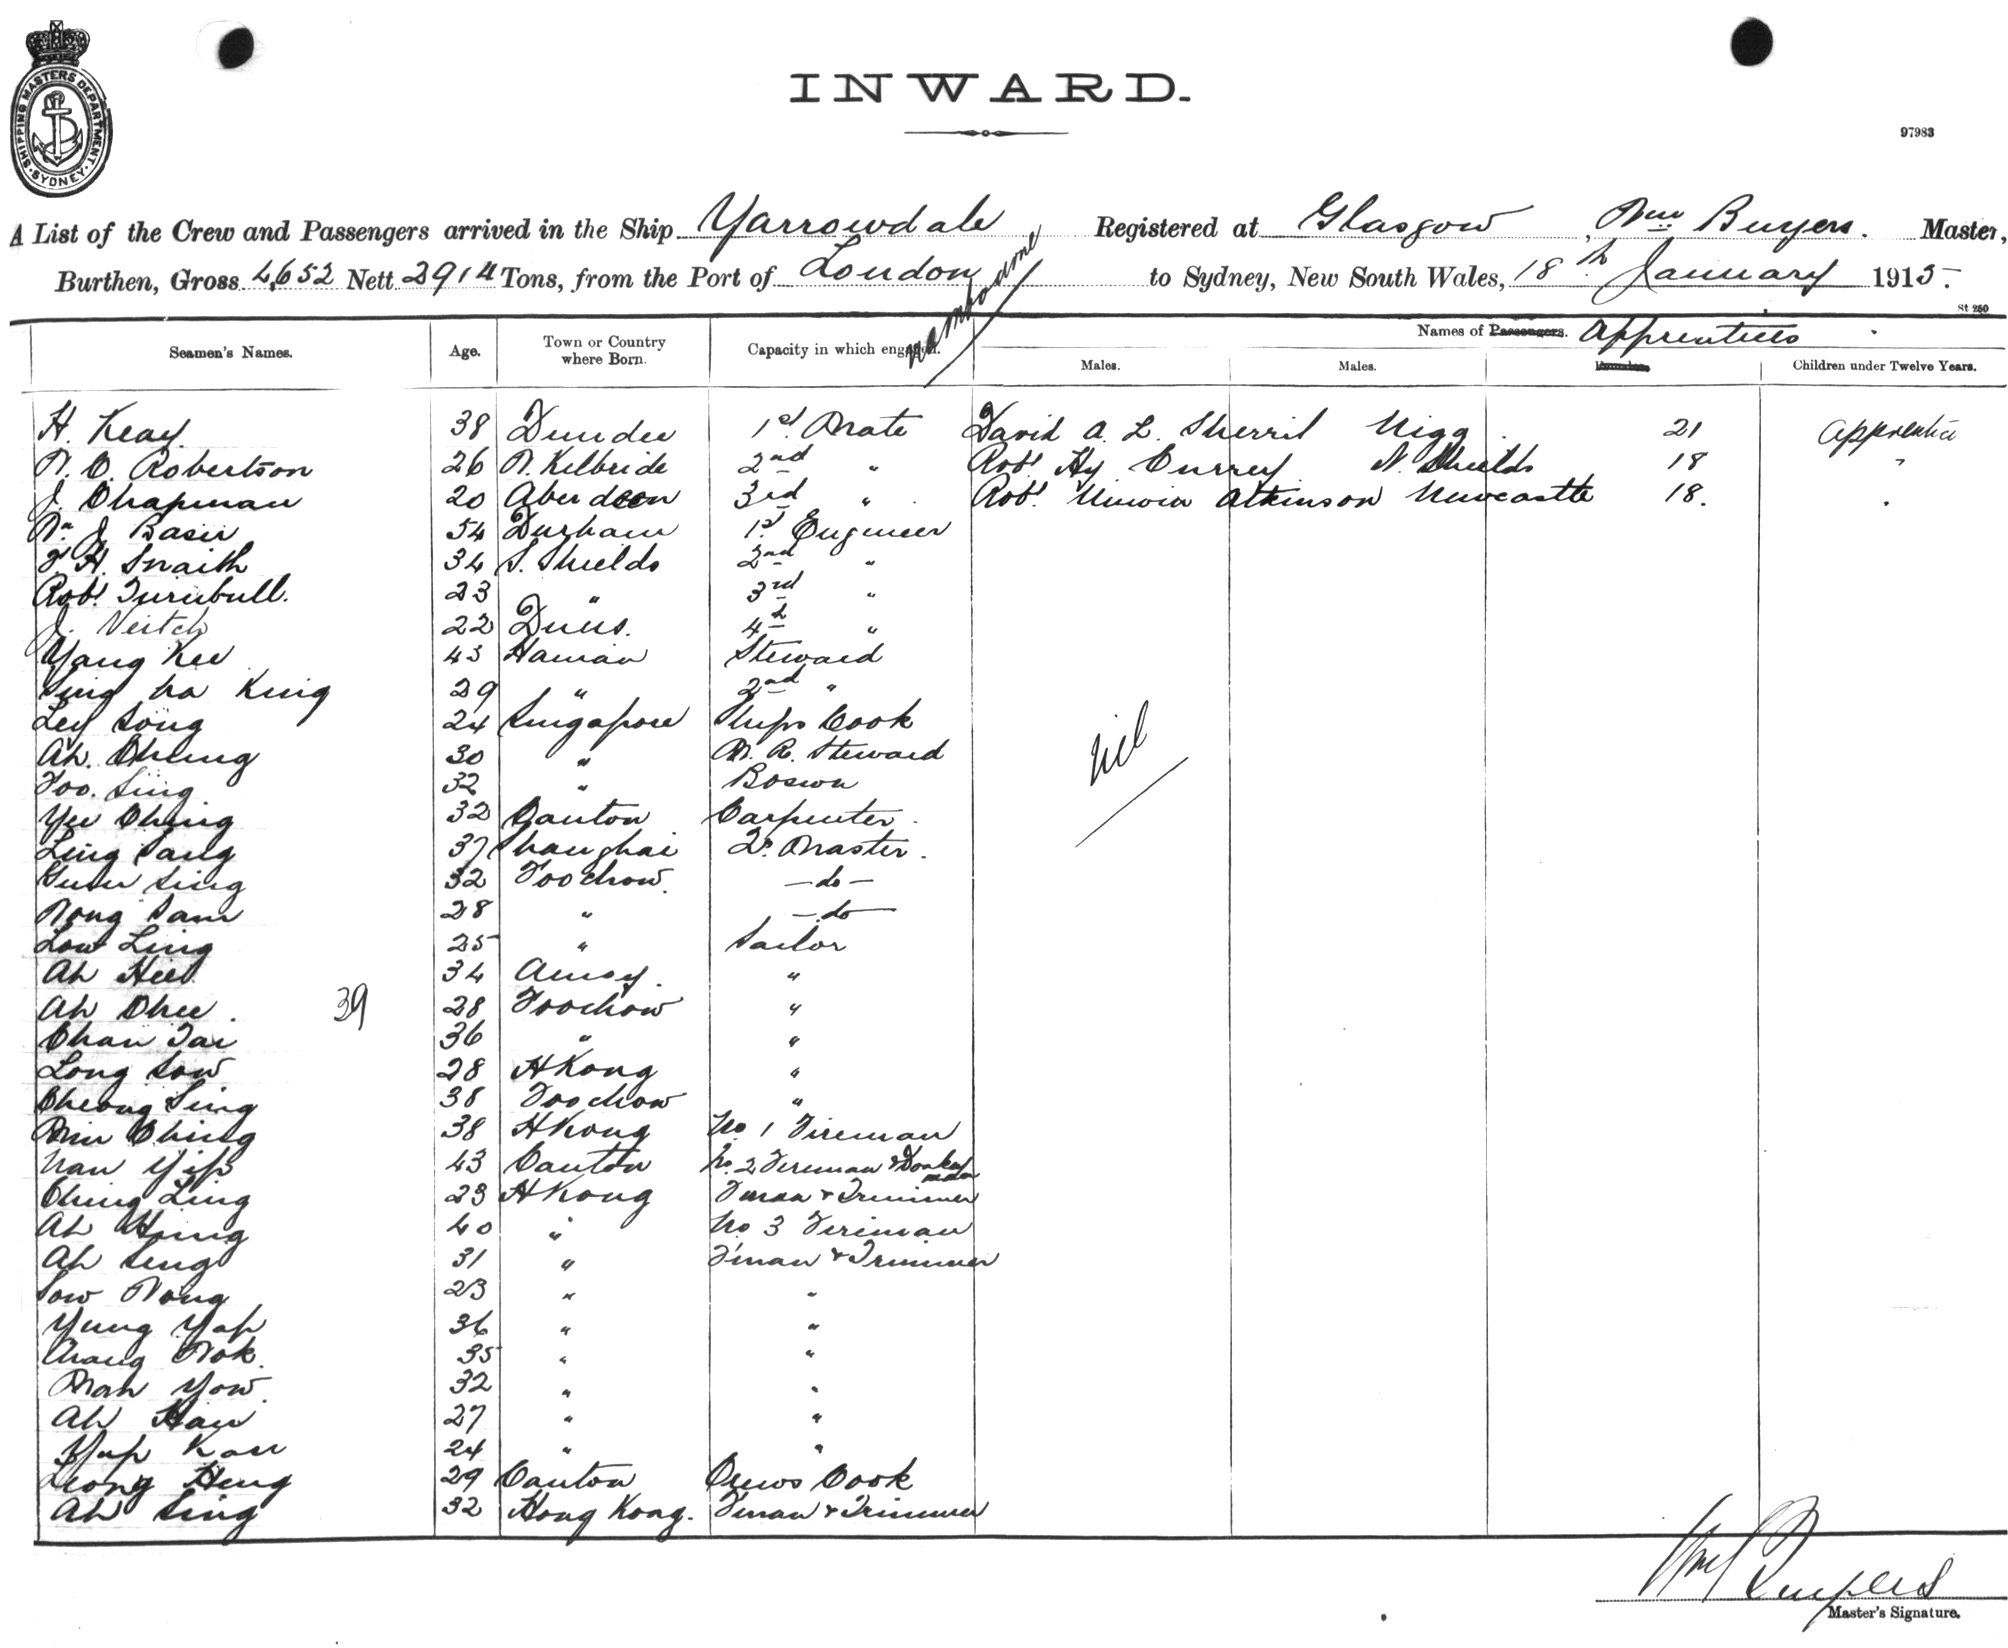 SHIPPING MASTERS DEPARTMENT
SYDNEY
INWARD.
97983
A List of the Crew and Passengers arrived in the Ship Yarrowdale Registered at Glasgow, Wm Buyers. Master,
Burthen, Gross 4,652 Nett 2914 Tons, from the Port of London to Sydney, New South Wales, 18th January 1915.
St 250
Seamen's Names. Age. Town or Country where Born. Capacity in which engaged. Names of Passengers. Apprentices
Males. Males. Children under Twelve Years.
H. Keay. 38 Dundee 1st Mate David A. L. Sherril Nigg 21 Apprentice
W. O. Robertson 26 W. Kilbride 2nd " Robt Hy Currey N. Shields 18 "
J. Chapman 20 Aberdeen 3rd " Robt Unwin Atkinson Newcastle 18. "
Wm J Basir 54 Durham 1st Engineer
T. H. Snaith 34 S. Shields 2nd "
Robt Turnbull. 23 " 3rd "
J. Veitch 22 Duns. 4th "
Yang Kee 43 Hainan Steward
Sing Ha King 29 " 2nd "
Ley Song 24 Singapore Ships Cook
Ah. Cheung 30 " M. R. Steward
Foo. Sing 32 " Boswn
Yee Ching 32 Canton Carpenter.
Ling Sang 37 Shanghai Q. Master.
Sing 32 Foochow. -do-
Wong Sam 28 " -do-
Low Ling 25 " Sailor
Ah Hee 34 Amoy. "
Ah Chee. 39 28 Foochow "
Chan Tai 36 " "
Long Sow 28 HKong "
Cheong Sing 38 Foochow "
Min Ching 38 HKong No 1 Fireman
Nan Yip 43 Canton No. 2 Fireman & Donkeyman
Ching Ling 23 HKong Fman & Trimmer
Ah Hung 40 " No 3 Fireman
Ah Seng 31 " F'man & Trimmer
Sow Wong 23 " "
Yung Yap 36 " "
Chang Wok. 35 " "
Mah Yow. 32 " "
Ah Hau 27 " "
Yap Kau 24 " "
Leong Heng 29 Canton Crews Cook
Ah Sing 32 Hong Kong. Fman & Trimmer
nil
Wm Buyers
Master's Signature.